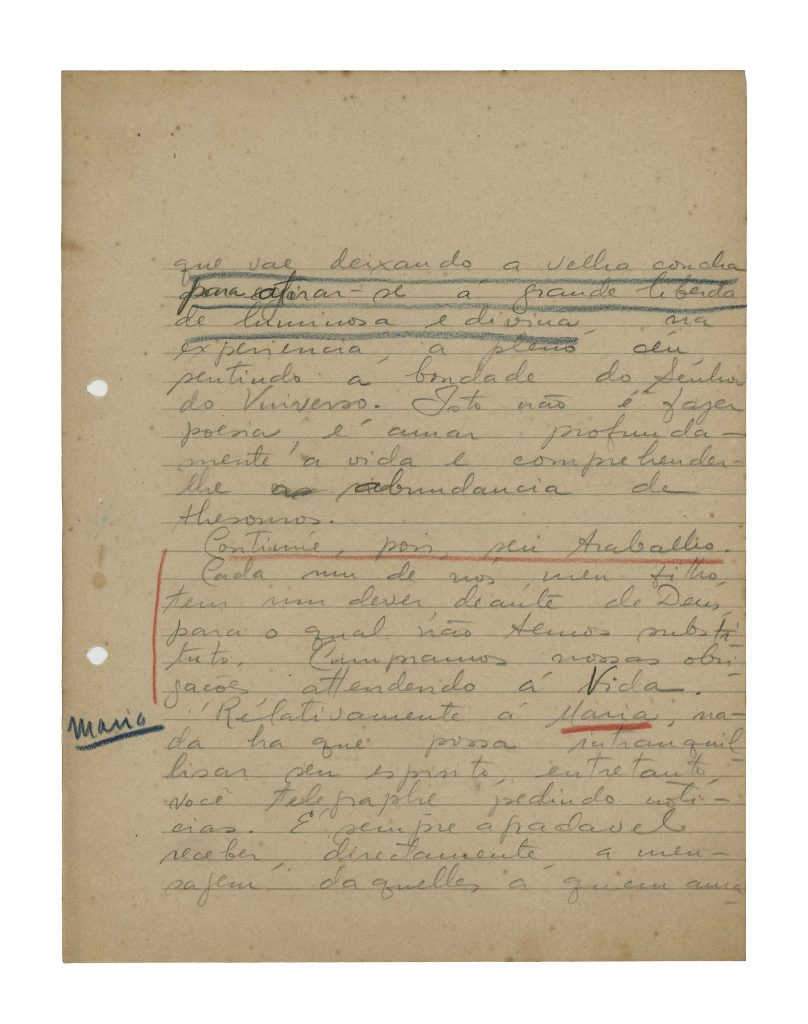 que vae deixando a velha concha
para atirar-se á grande liberda
de luminosa e divina, na
experiencia, a pleno céu,
sentindo a bondade do Senhor
do Universo. Isto não é fazer
poesia, é amar profunda-
mente a vida e comprehender-
lhe abundancia de
thesouros.
Continúe, pois, seu trabalho.
Cada um de nós, meu filho,
tem um dever, deante de Deus,
para o qual não temos substi-
tuto. Cumpramos nossas obri
gações attendendo á Vida.
Maria
Relativamente á Maria, na-
da ha que possa intranquil
lisar seu espirito, entretanto,
você telegraphe pedindo noti-
cias. É sempre agradavel
receber, directamente, a men-
sagem daquelles á quem ama